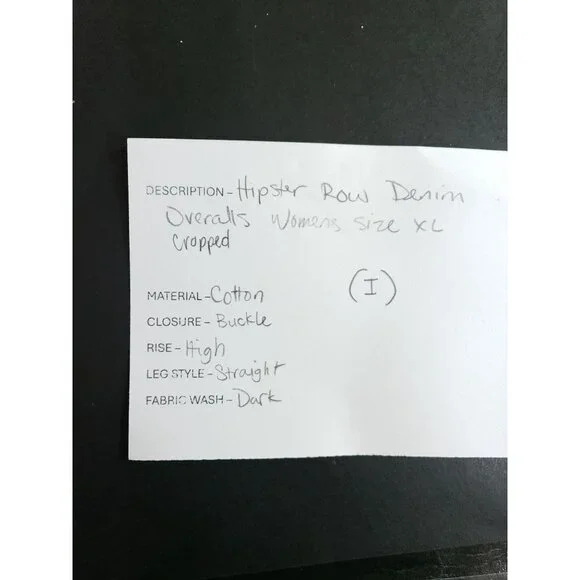 DESCRIPTION - Hipster Row Denim
Overalls Womens Size XL
Cropped
(I)
MATERIAL - Cotton
CLOSURE - Buckle
RISE - High
LEG STYLE - Straight
FABRIC WASH - Dark